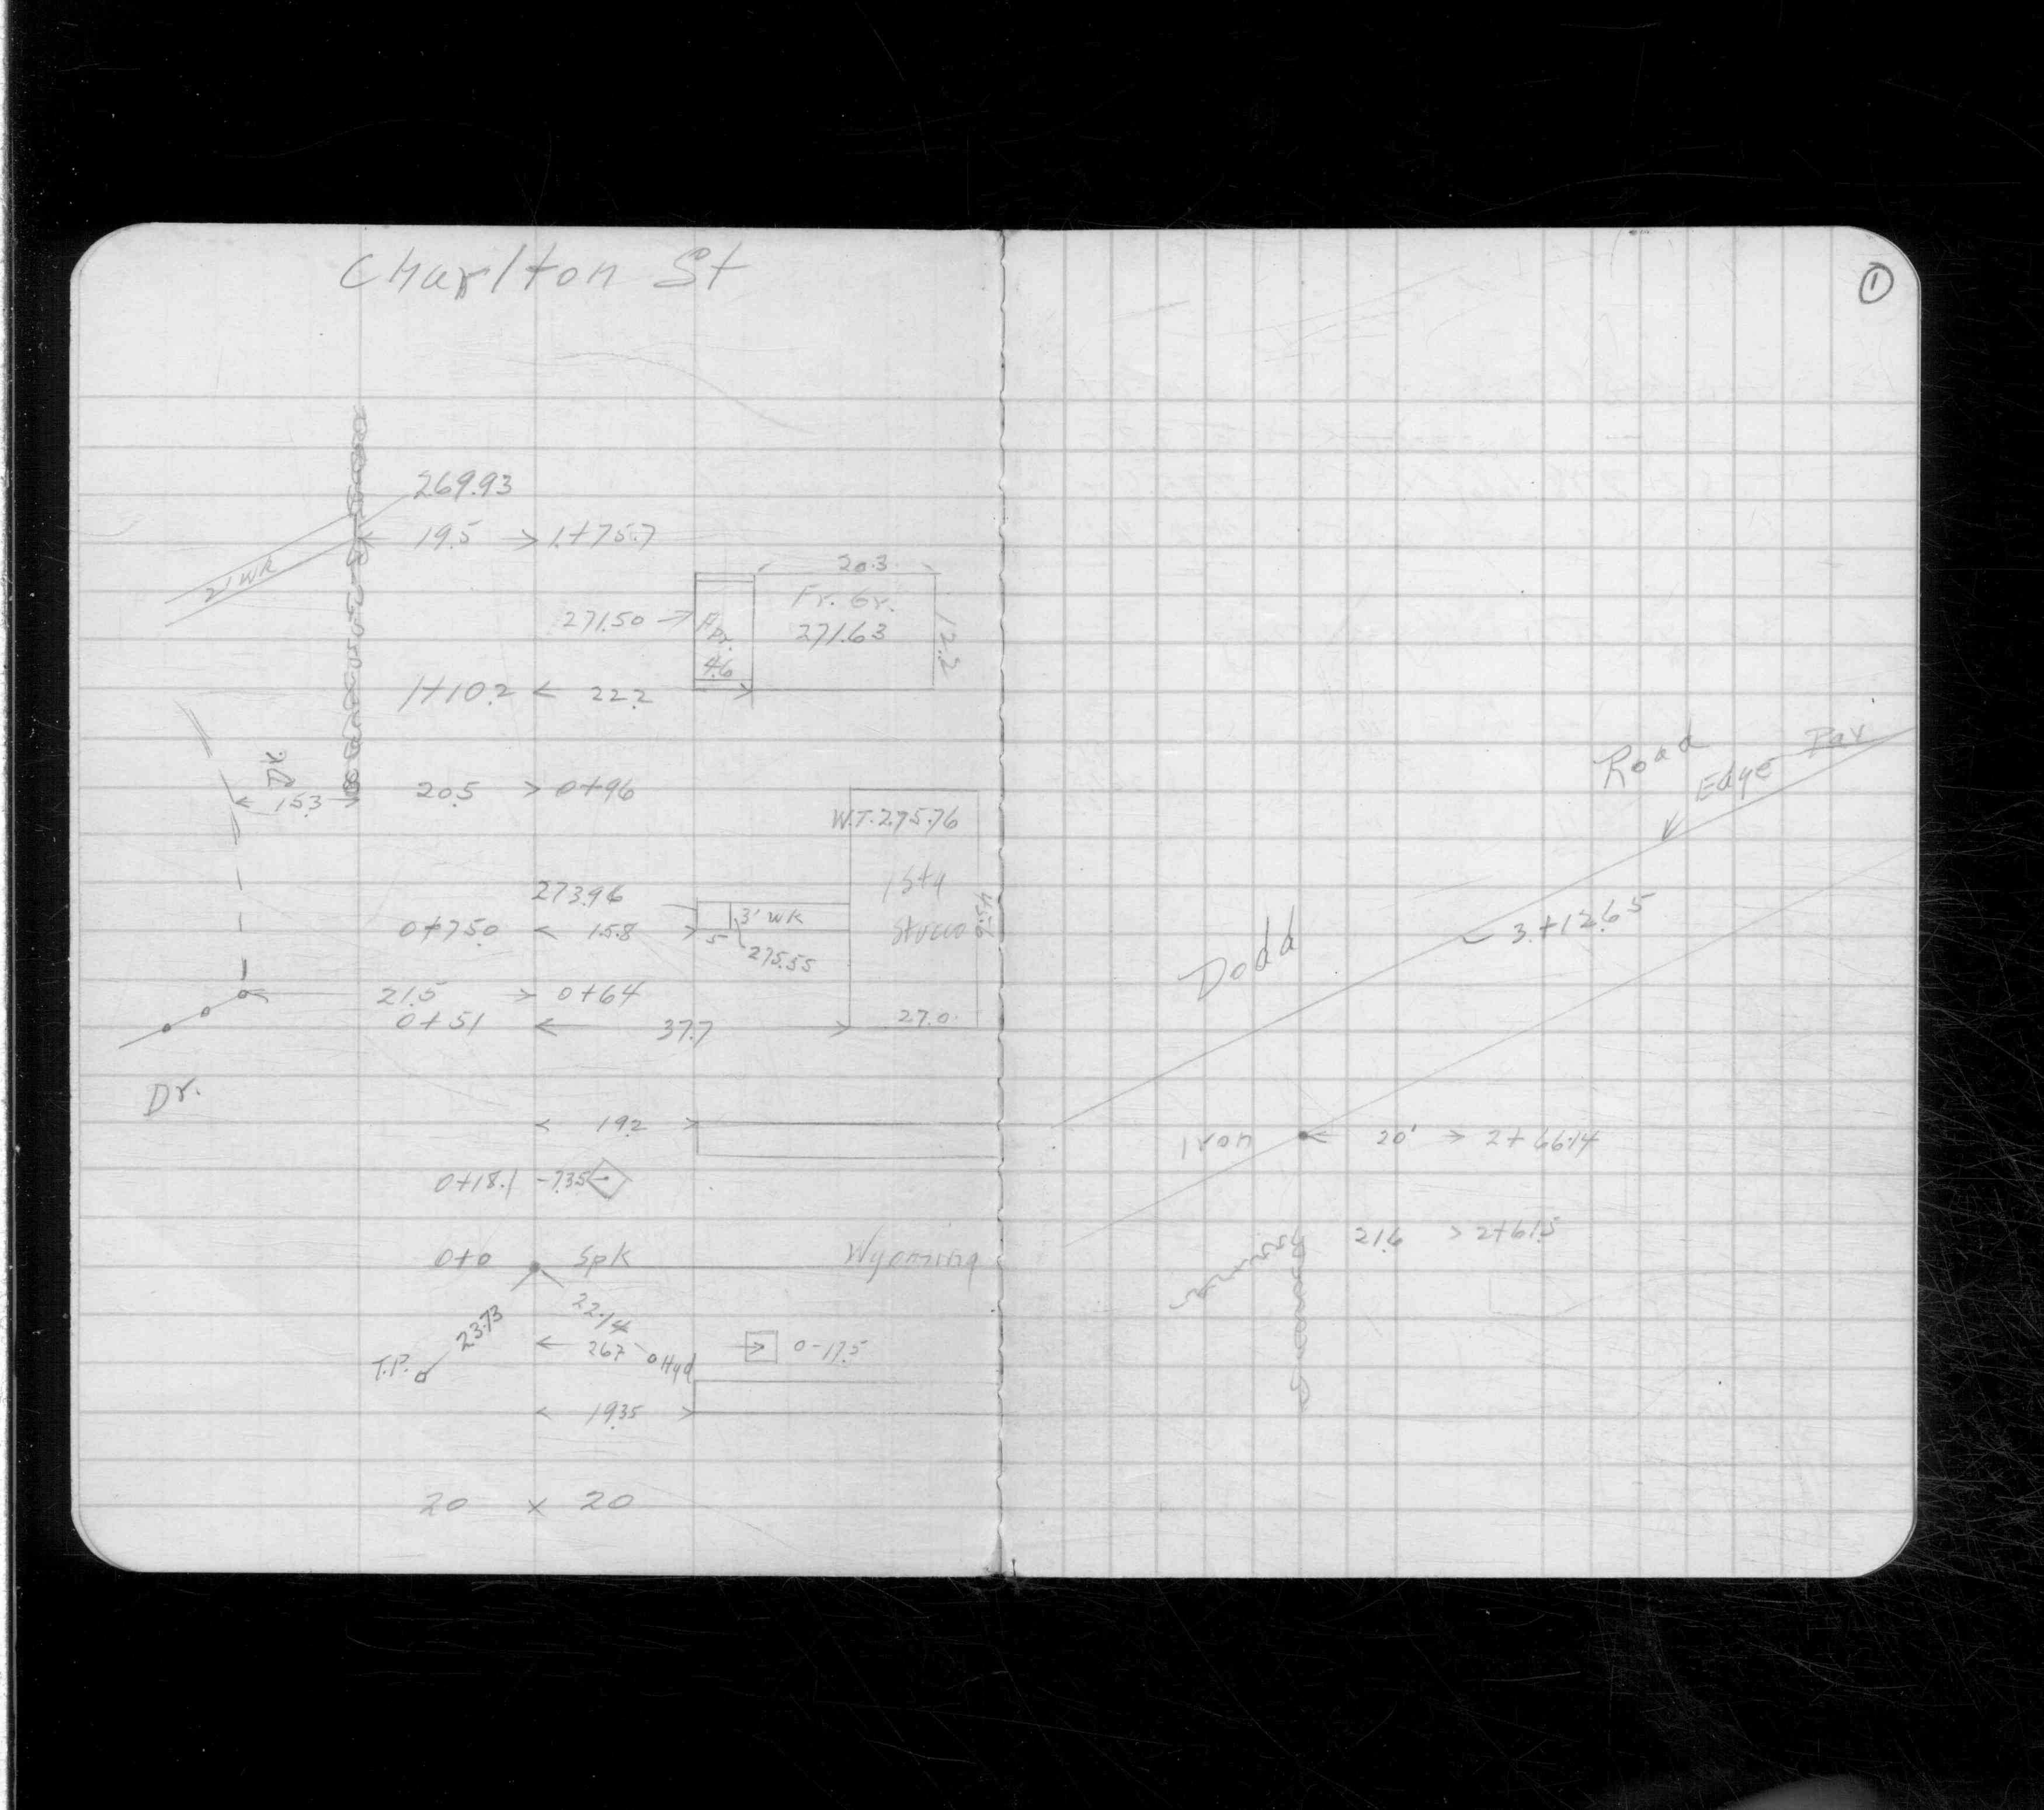 Charlton St
269.93
19.5 > 1+75.7
2' wk
20.3
Fr. Gr.
271.50 → Apr. 271.63
12.2
4.6
1+10.2 < 22.2
Dr.
15.3 20.5 > 0+96
W.T. 275.76
1 Sty
Stucco
45.6
273.96
0+75.0 < 15.8 > 5 3' wk
275.55
21.5 > 0+64
0+51 ← 37.7 → 27.0
Dr.
< 19.2 >
0+18.1 -7.35
0+0 Spk Wyoming
23.73 22.14
T.P. ← 26.7 Hyd → 0-17.5
< 19.35 >
20 x 20
1
Road
Edge Pav
Dodd
3+12.65
Iron ← 20' → 2+66.14
21.6 > 2+61.5